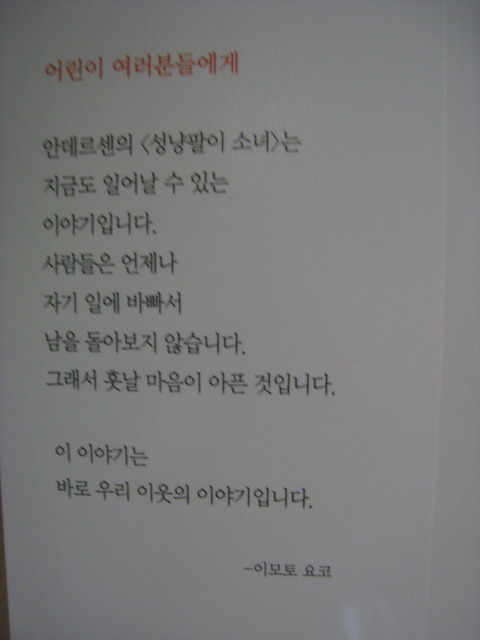 어린이 여러분들에게
안데르센의 <성냥팔이 소녀>는
지금도 일어날 수 있는
이야기입니다.
사람들은 언제나
자기 일에 바빠서
남을 돌아보지 않습니다.
그래서 훗날 마음이 아픈 것입니다.
이 이야기는
바로 우리 이웃의 이야기입니다.
-이모토 요코